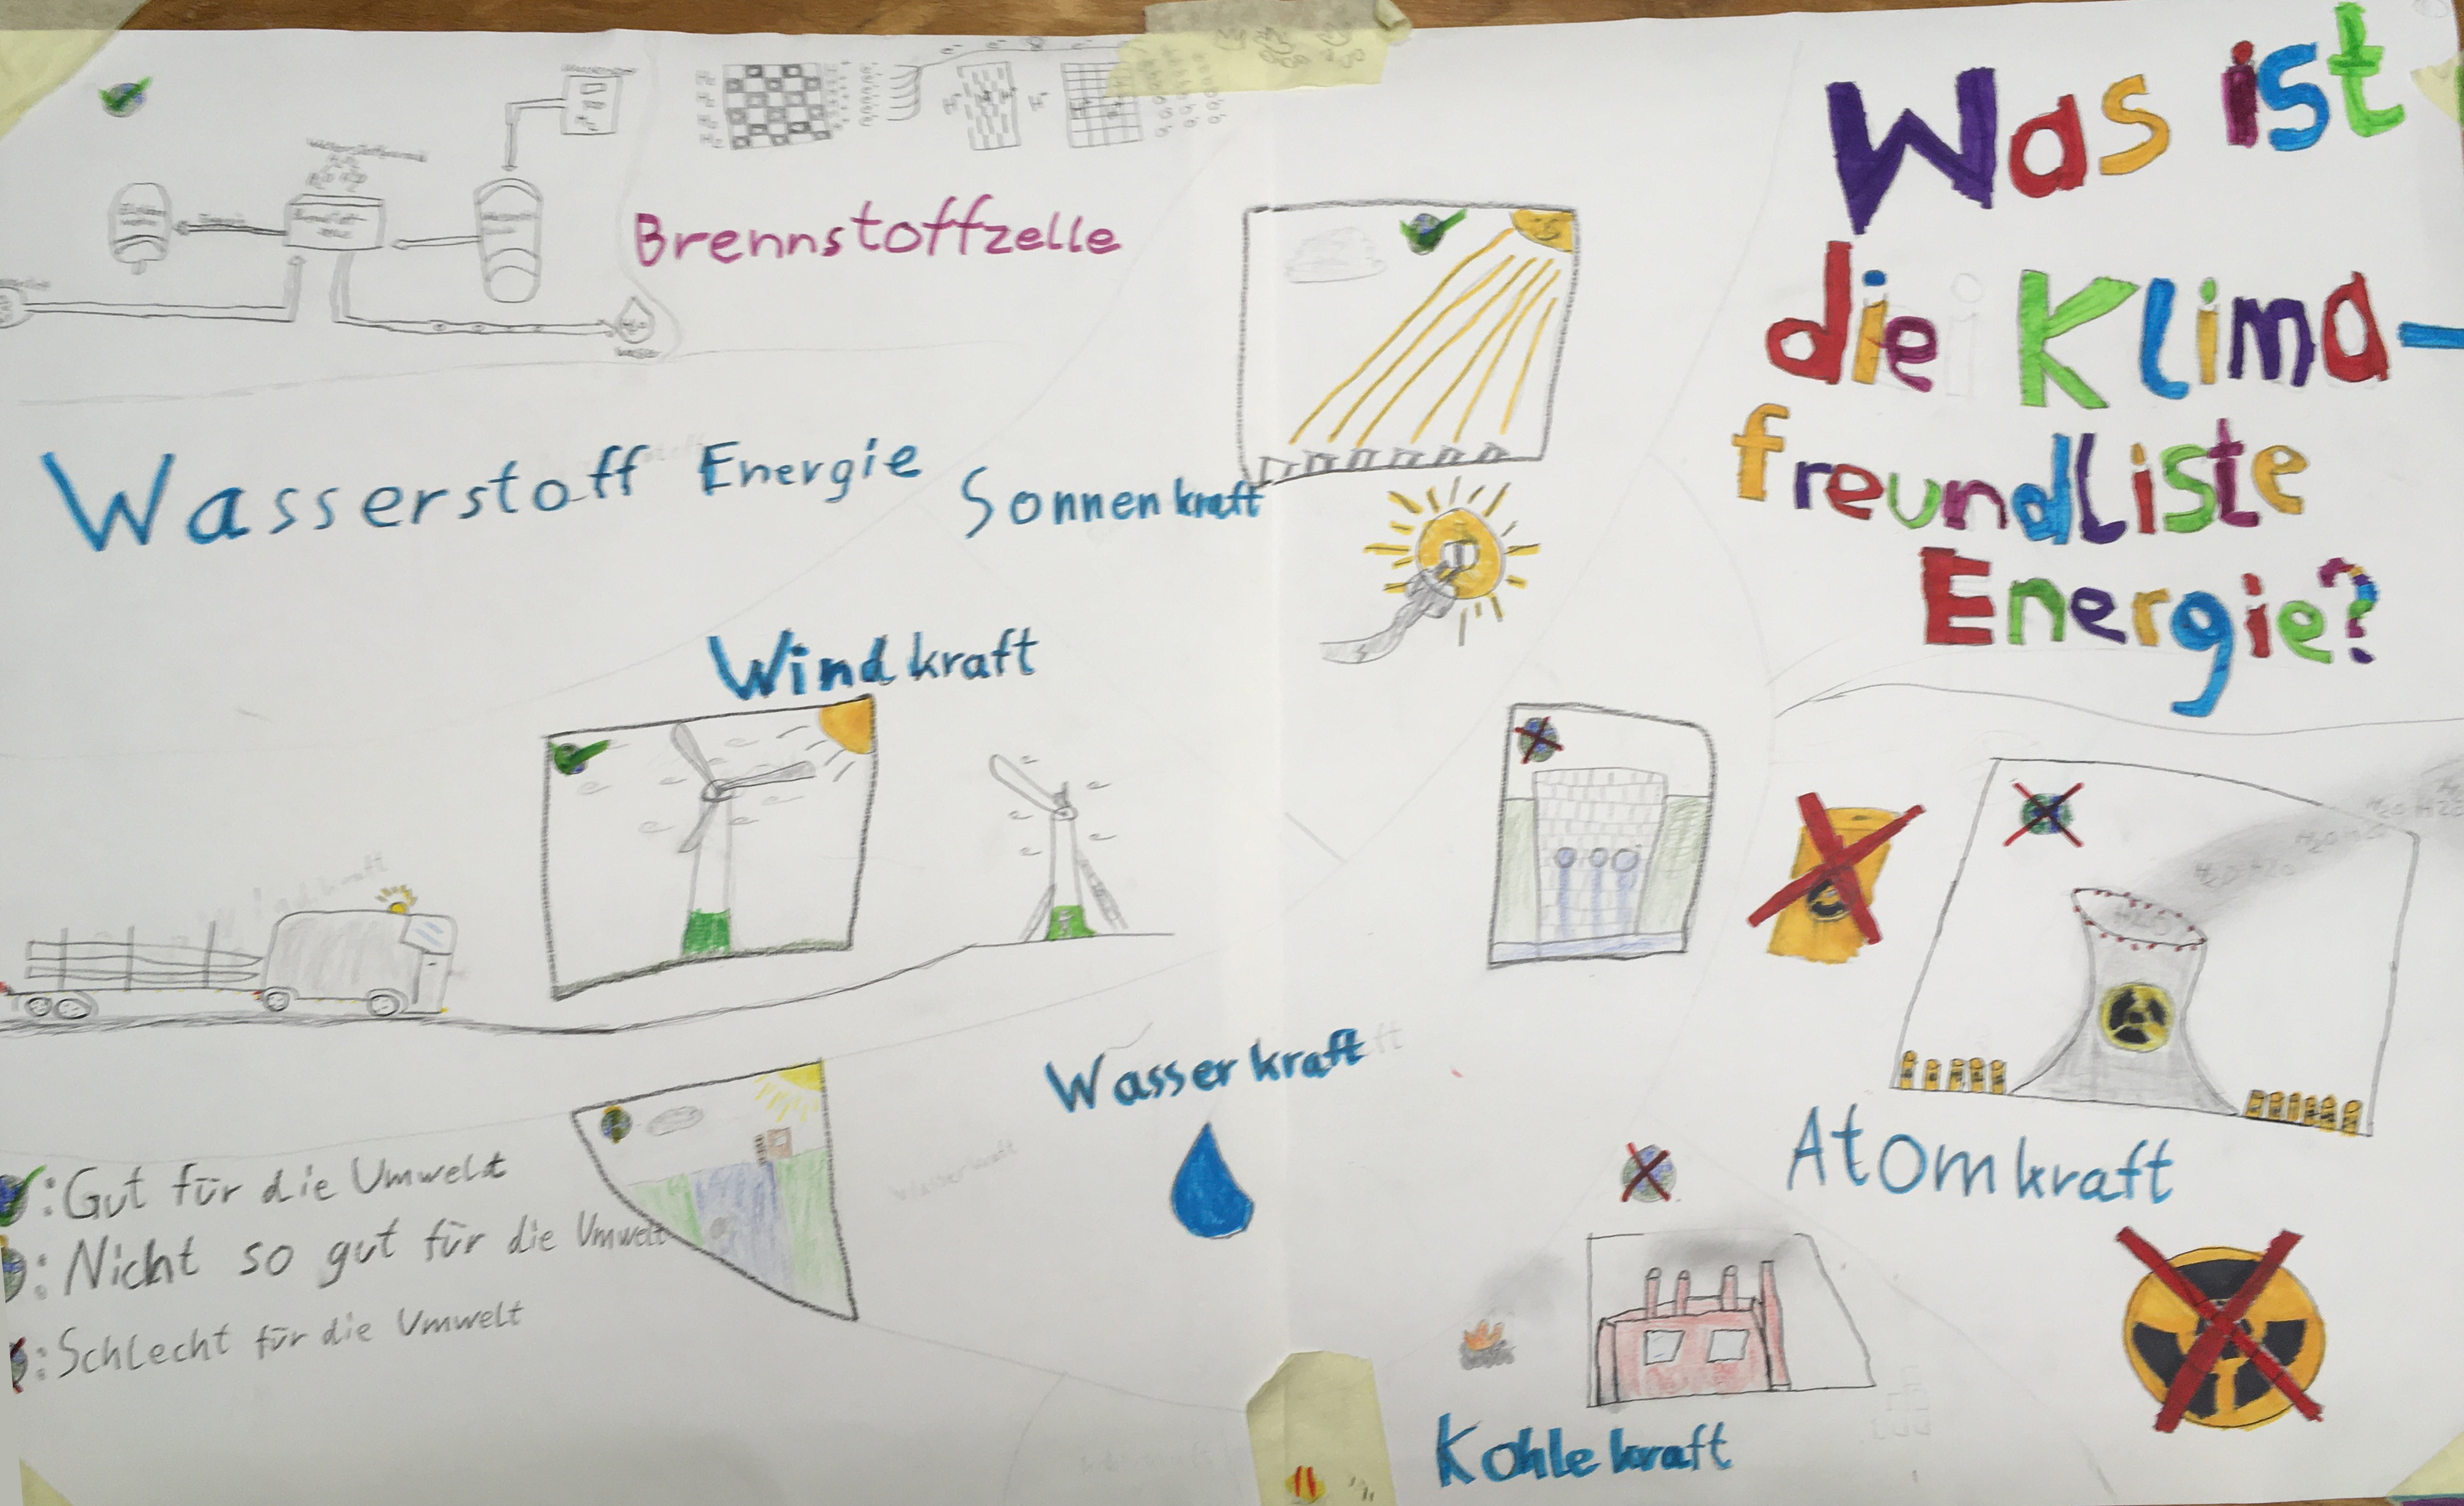 Was ist
die Klima-
freundliste
Energie?
Brennstoffzelle
Wasserstoff Energie
Sonnenkraft
Windkraft
Wasserkraft
Atomkraft
Kohlekraft
: Gut für die Umweld
: Nicht so gut für die Umwelt
: Schlecht für die Umwelt